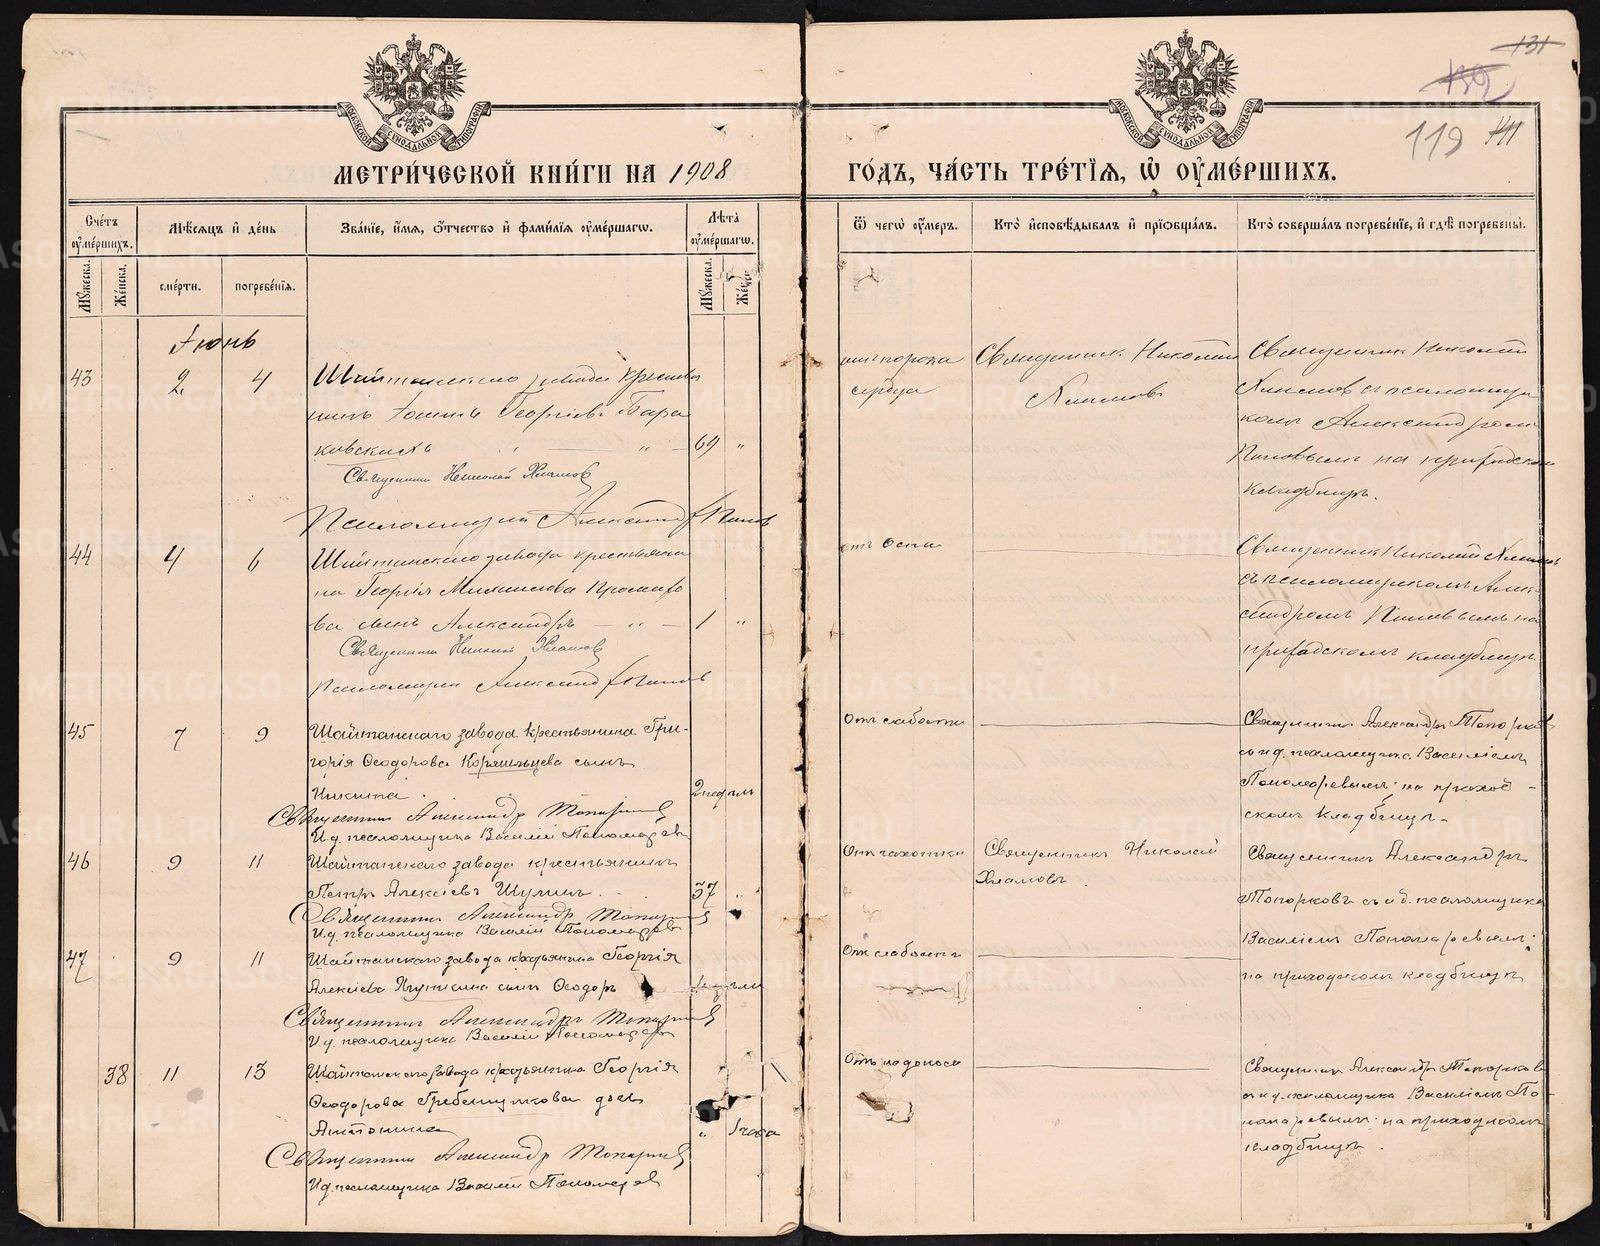 131
132
119 141
МЕТРИ́ЧЕСКОЙ КНИ́ГИ НА 1908
ГО́ДЪ, ЧА́СТЬ ТРЕ́ТІЯ, Ѡ҆ ОУ҆МЕ́РШИХЪ.
Сче́тъ оу҆ме́ршихъ.
Мѣ́сяцъ и҆ де́нь
Зва́ніе, и҆́мя, ѻ҆́тчество и҆ фами́лія оу҆ме́ршагѡ.
Лѣ́та оу҆ме́ршагѡ.
Ѿ чегѡ̀ оу҆́меръ.
Кто̀ и҆сповѣ́дывалъ и҆ прїѡбща́лъ.
Кто̀ соверша́лъ погребе́ніе, и҆ гдѣ̀ погребены̀.
Му́жеска.
Же́нска.
сме́рти.
погребе́нія.
Му́жеска.
Іюнь
43 2 4
Шайтанскаго завода крестья
нинъ Іоаннъ Георгіевъ Бара
ковскихъ 69 „
Священникъ Николай Хламовъ
Псаломщикъ Александръ Поповъ
отъ порока
сердца
Священникъ Николай
Хламовъ
Священникъ Николай
Хламовъ съ псаломщи
комъ Александромъ
Поповымъ на приходском
кладбищѣ.
44 4 6
Шайтанскаго завода крестьяни
на Георгія
ва сынъ Александръ — „ — 1 „
Священникъ Николай Хламовъ
Псаломщикъ Александръ Поповъ
отъ оспы
Священникъ Николай Хламовъ
съ псаломщикомъ Алек-
сандромъ Поповымъ на
приходскомъ кладбищѣ
45 7 9
Шайтанскаго завода крестьянина Гри-
горія Ѳеодорова Корякинцева сынъ
Никита. 2 недѣли
Священникъ Александръ Топорковъ
И.д. псаломщика Василій Пономаревъ
Отъ слабости
Священникъ Александръ Топорковъ
съ и.д. псаломщика Василіемъ
Пономаревымъ на приход-
скомъ кладбищѣ.
46 9 11
Шайтанскаго завода крестьянинъ
Петръ Алексіевъ Шулинъ. 37 „
Священникъ Александръ Топорковъ
И.д. псаломщика Василій Пономаревъ
Отъ чахотки
Священникъ Николай
Хламовъ.
Священникъ Александръ
Топорковъ съ и.д. псаломщика
Василіемъ Пономаревымъ
на приходскомъ кладбищѣ
47 9 11
Шайтанскаго завода крестьянина Георгія
Алексіева сынъ Ѳеодоръ недѣли
Священникъ Александръ Топорковъ
И.д. псаломщика Василій Пономаревъ
Отъ слабости
38 11 13
Шайтанскаго завода крестьянина Георгія
Ѳеодорова Гребенщикова дочь
Антонина „ 1 года
Священникъ Александръ Топорковъ
И.д. псаломщика Василій Пономаревъ
Отъ поноса
Священникъ Александръ Топорковъ
съ и.д. псаломщика Василіемъ По-
номаревымъ на приходскомъ
кладбищѣ.
METRIKI.GASO-URAL.RU